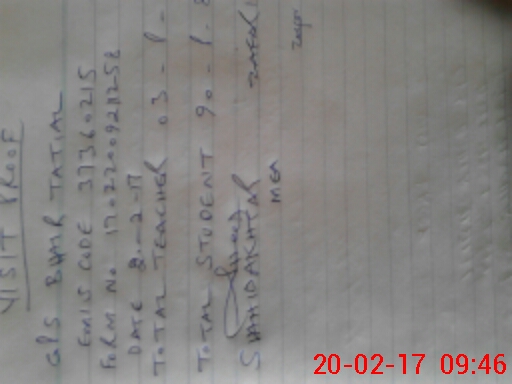 VISIT PROOF
GPS BHMR TATIAL
EMIS CODE 37360215
FORM NO 17022009211258
DATE 20-2-17
TOTAL TEACHER 03 - P -
TOTAL STUDENT 90 - P.
SHAHIDAKHTAR
MEA
20-02-17 09:46